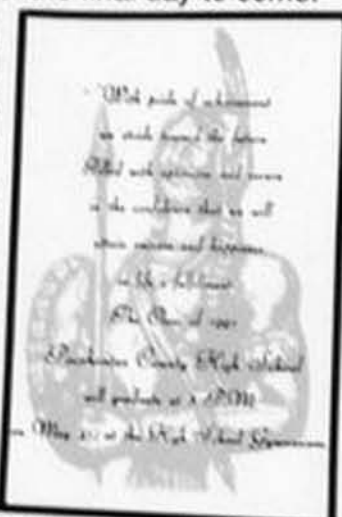 day to come.
With pride of achievement
we stride toward the future
Filled with optimism and
in the confidence that we will
attain success and happiness
in life's fulfillment.
The Class of
Pocahontas County High School
will graduate at 8 P.M.
May at the High School Gymnasium